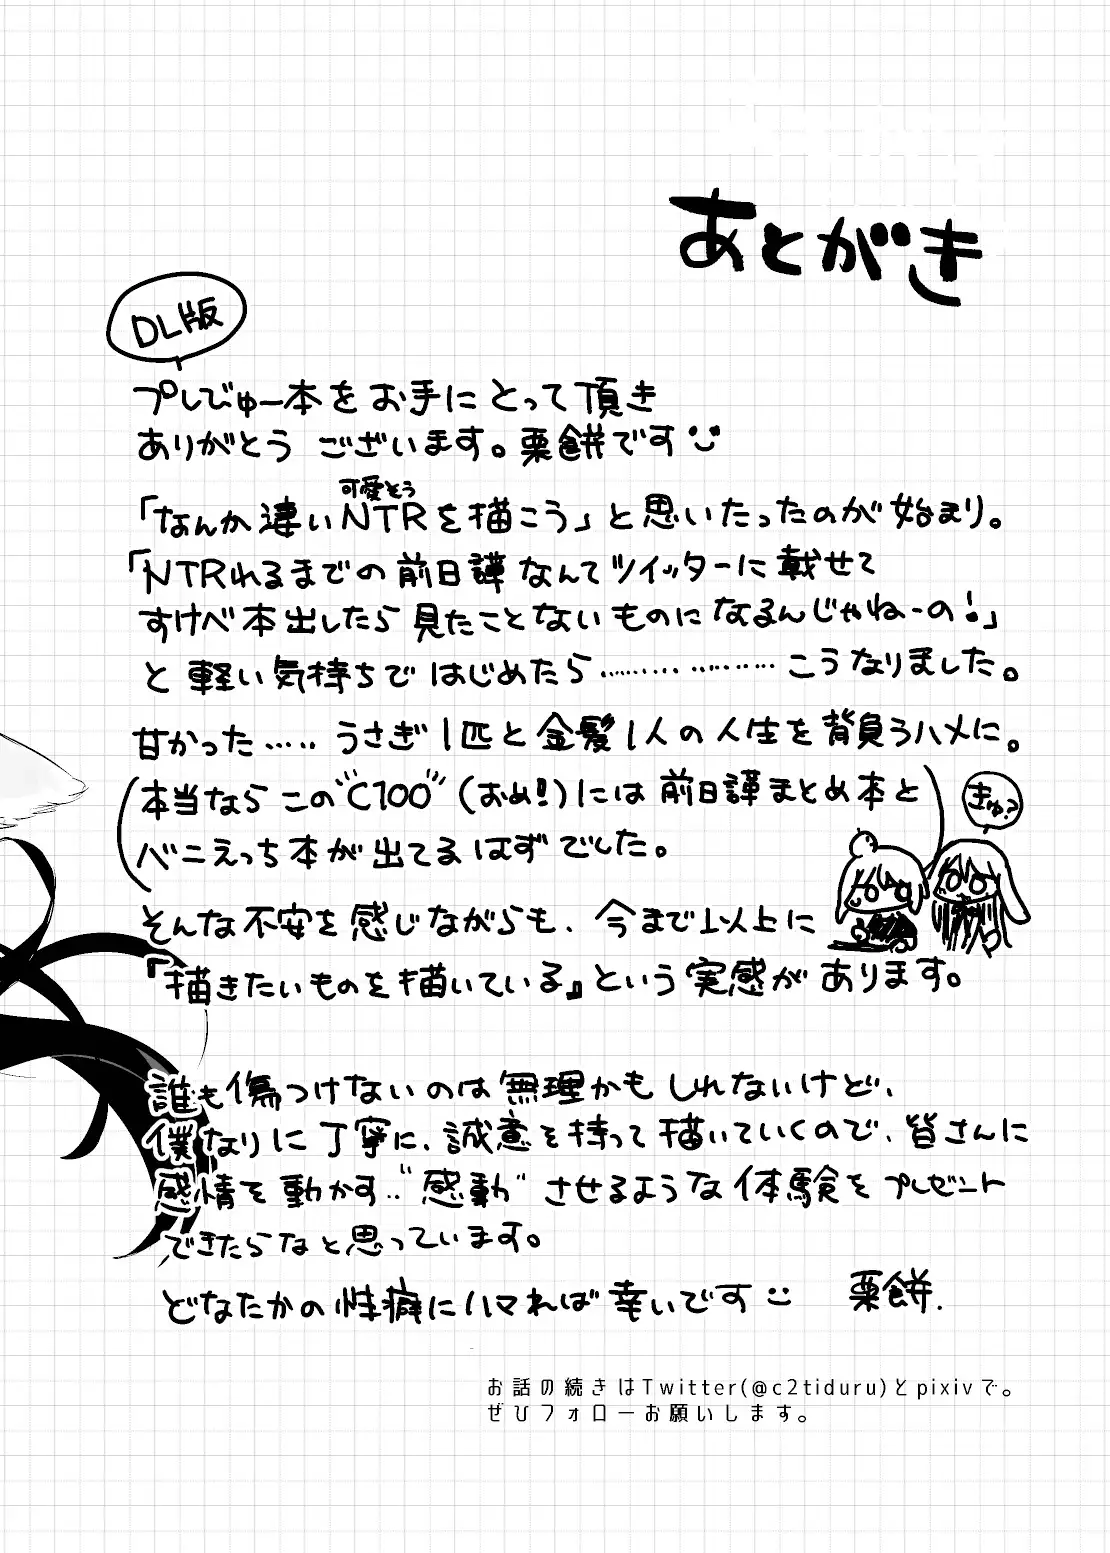 あとがき
DL版
プレびゅー本をお手にとって頂き
ありがとうございます。栗餅です
可愛そう
「なんか違いNTRを描こう」と思いたったのが始まり。
「NTRれるまでの前日譚なんてツイッターに載せて
すけべ本出したら見たことないものになるんじゃねーの!」
と軽い気持ちではじめたら………………こうなりました。
甘かった…‥うさぎ1匹と金髪1人の人生を背負うハメに。
(本当ならこの"C100"(おめ!!)には前日譚まとめ本と
べニえっち本が出てるはずでした。)
きゅ?
そんな不安を感じながらも、今まで以上に
『描きたいものを描いている』という実感があります。
誰も傷つけないのは無理かもしれないけど、
僕なりに丁寧に、誠意を持って描いていくので、皆さんに
感情を動かす‥"感動"させるような体験をプレゼント
できたらなと思っています。
どなたかの性癖にハマれば幸いです 栗餅.
お話の続きはTwitter(@c2tiduru)とpixivで。
ぜひフォローお願いします。